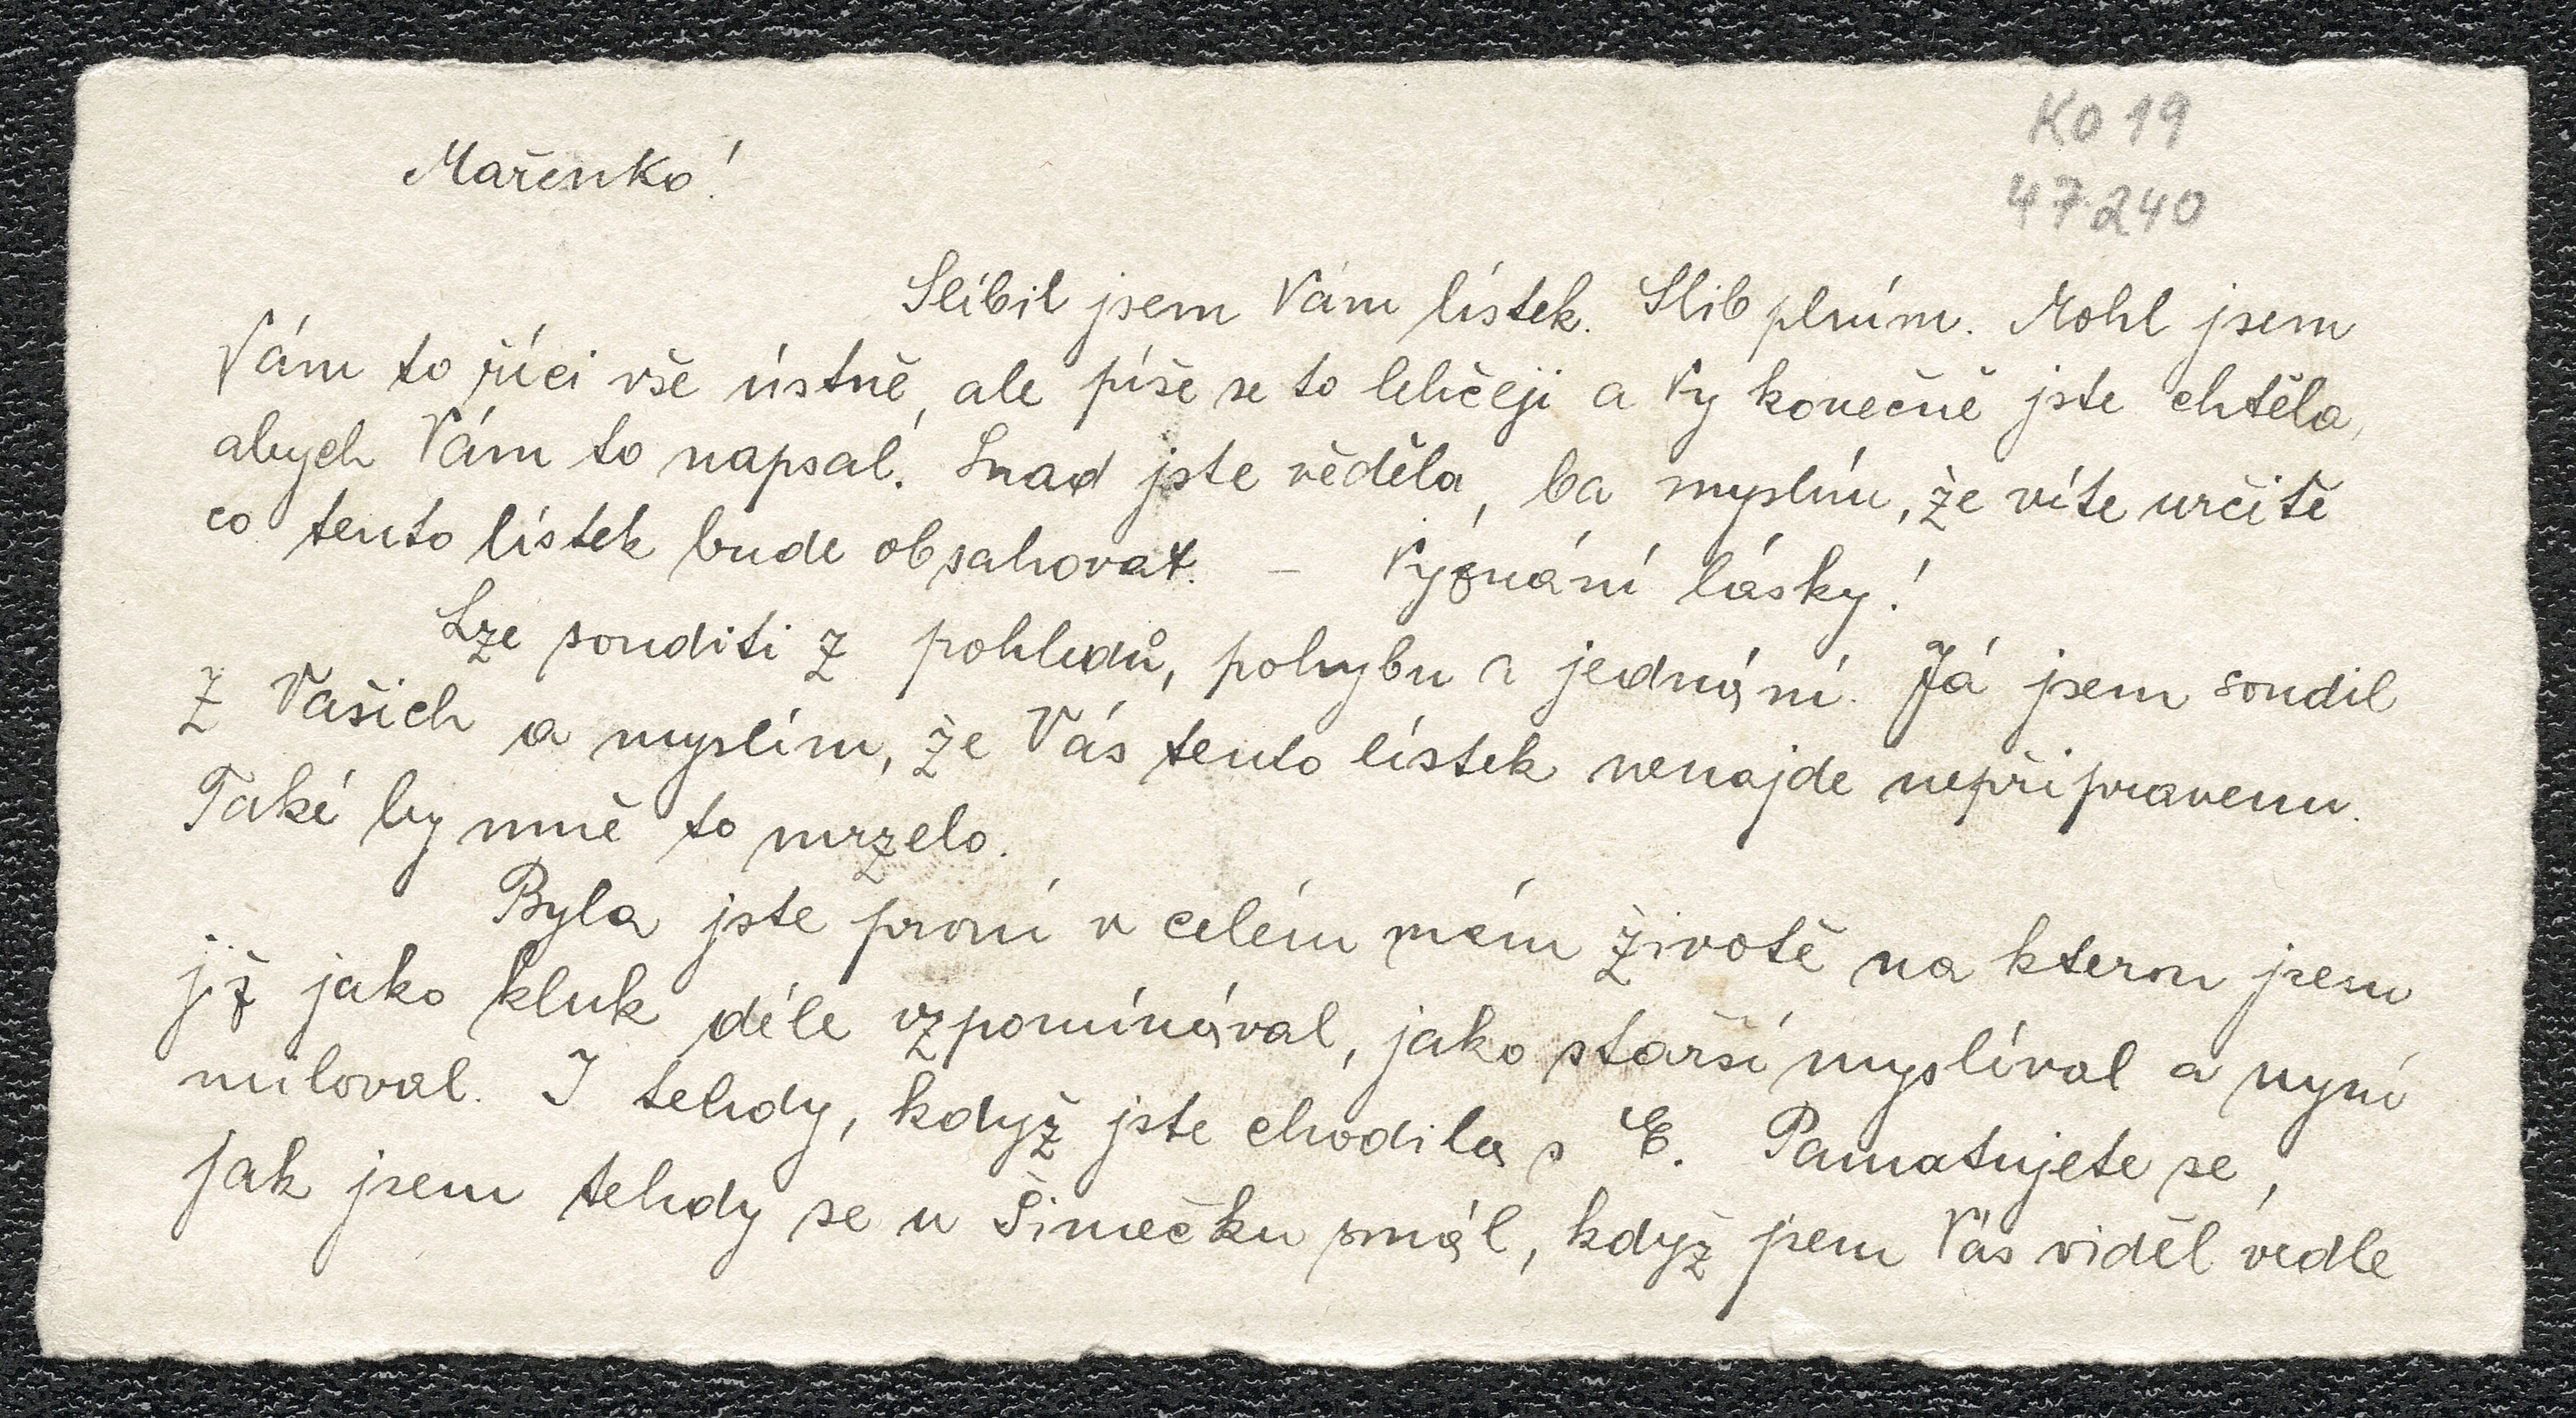 KO 19
47240
Mařenko!
Slíbil jsem Vám lístek. Slib plním. Mohl jsem
Vám to říci vše ústně, ale píše se to lehčeji a Vy konečně jste chtěla,
abych Vám to napsal. Snad jste věděla, ba myslím, že víte určitě
co tento lístek bude obsahovat. – Vyznání lásky!
Lze souditi z pohledů, pohybu i jednání. Já jsem soudil
z Vašich a myslím, že Vás tento lístek nenajde nepřipravenu.
Také by mně to mrzelo.
Byla jste první v celém mém životě na kterou jsem
již jako kluk déle vzpomínával, jako starší myslíval a nyní
miloval. I tehdy, když jste chodila s E. Pamatujete se,
jak jsem tehdy se u Šimečku smál, když jsem Vás viděl vedle